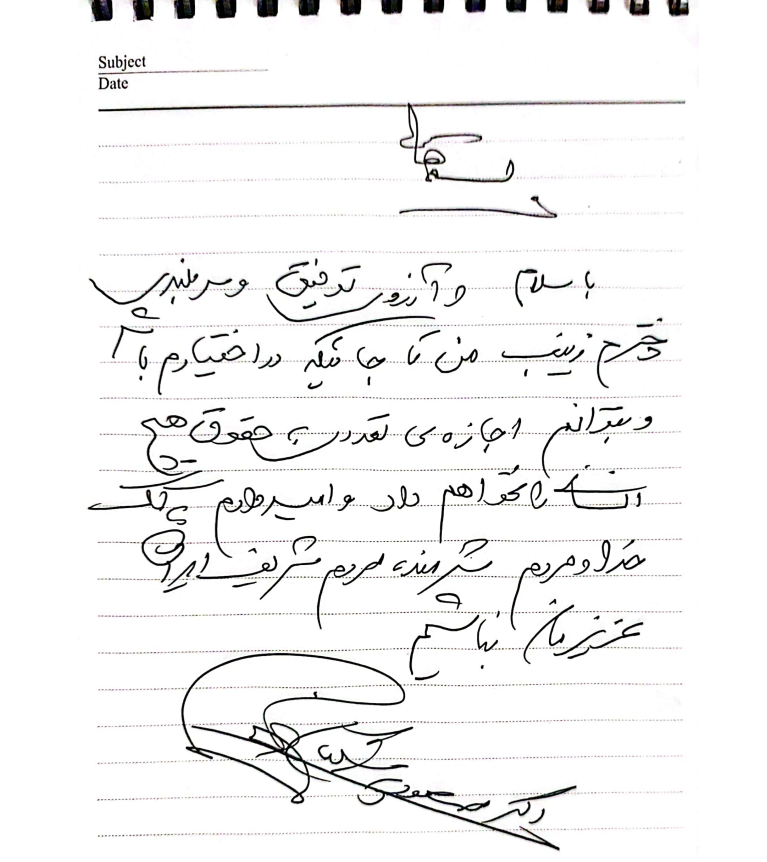 Subject
Date
بسمه تعالی
با سلام و آرزوی توفیق و سربلندی
دخترم زینب من تا جائیکه در اختیارم باشد
و بتوانم اجازه‌ی تعدی به حقوق هیچ
انسانی را نخواهم داد و امیدوارم به کمک
خدا و مردم شرمنده مردم شریف ایران
عزیزمان نباشم
دکتر مسعود پزشکیان